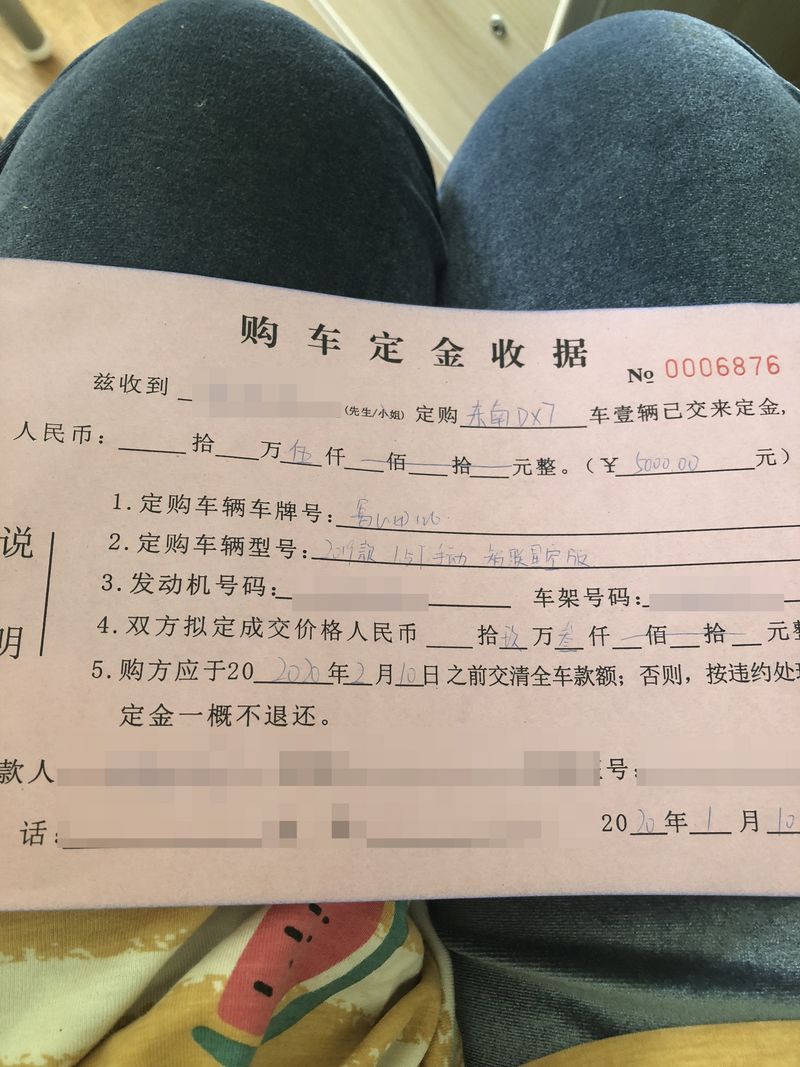 购车定金收据
№ 0006876
兹收到 (先生/小姐) 定购 东南DX7 车壹辆已交来定金，
人民币： 拾 万 伍 仟 佰 拾 元整。（￥ 5000.00 元）
说
明
1.定购车辆车牌号：
2.定购车辆型号：2019款 1.5T手动 智联星空版
3.发动机号码： 车架号码：
4.双方拟定成交价格人民币 拾 玖 万 叁 仟 佰 拾 元整
5.购方应于20 2020 年 2 月 10 日之前交清全车款额；否则，按违约处理
定金一概不退还。
款人 号：
话：
20 20 年 1 月 10